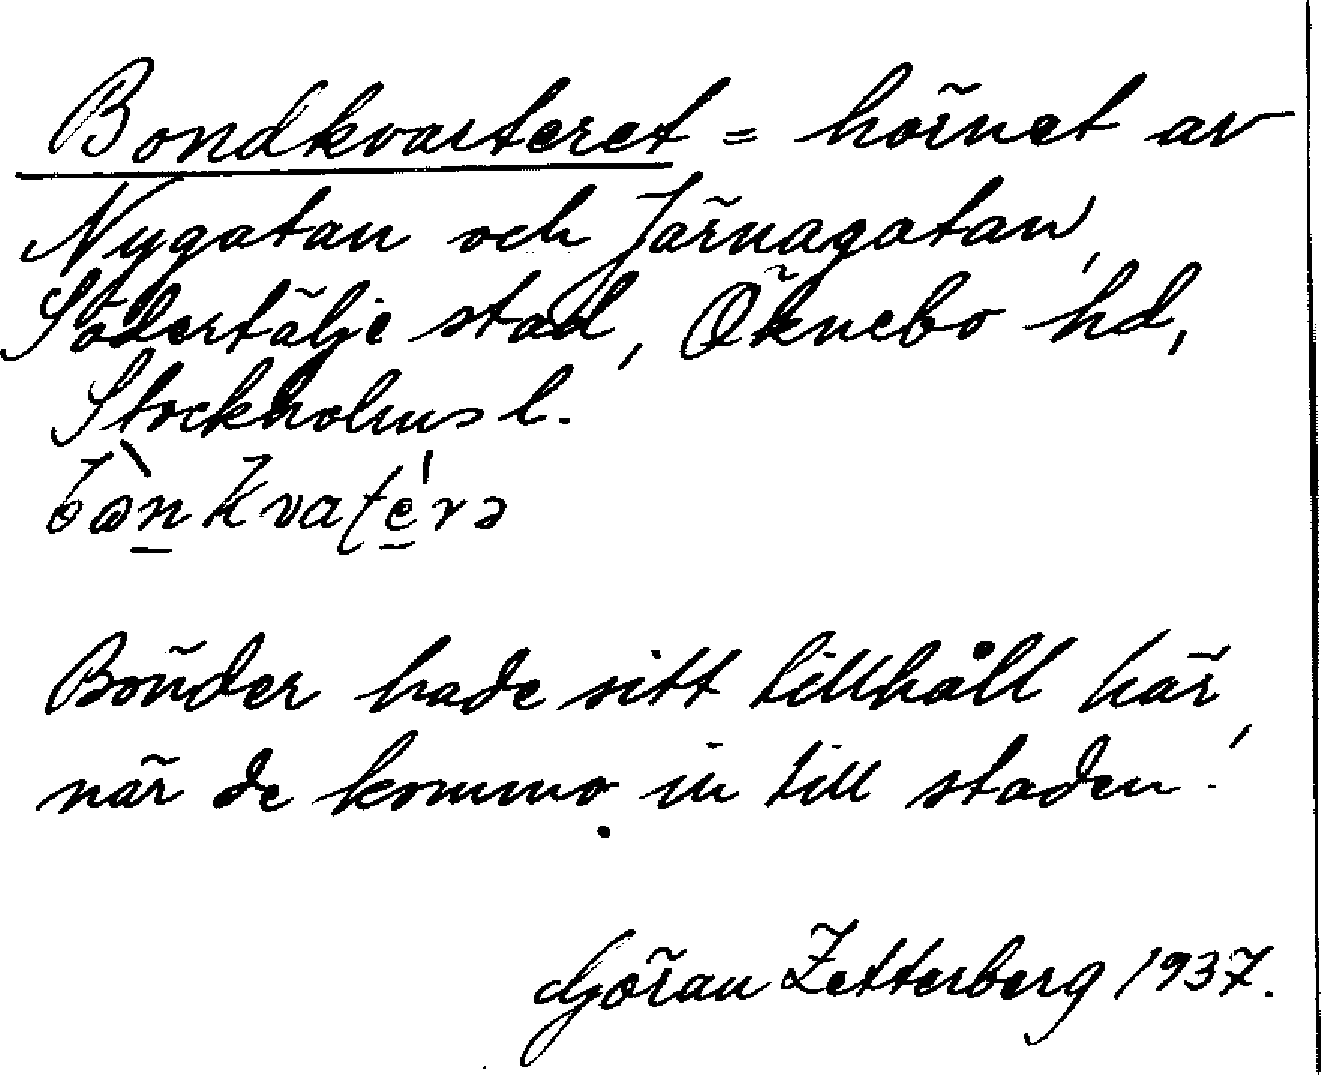 Bondkvarteret = hörnet av
Nygatan och Järnagatan,
Södertälje stad, Öknebo hd,
Stockholms l.

Bönder hade sitt tillhåll här,
när de kommo in till staden.
Göran Zetterberg 1937.